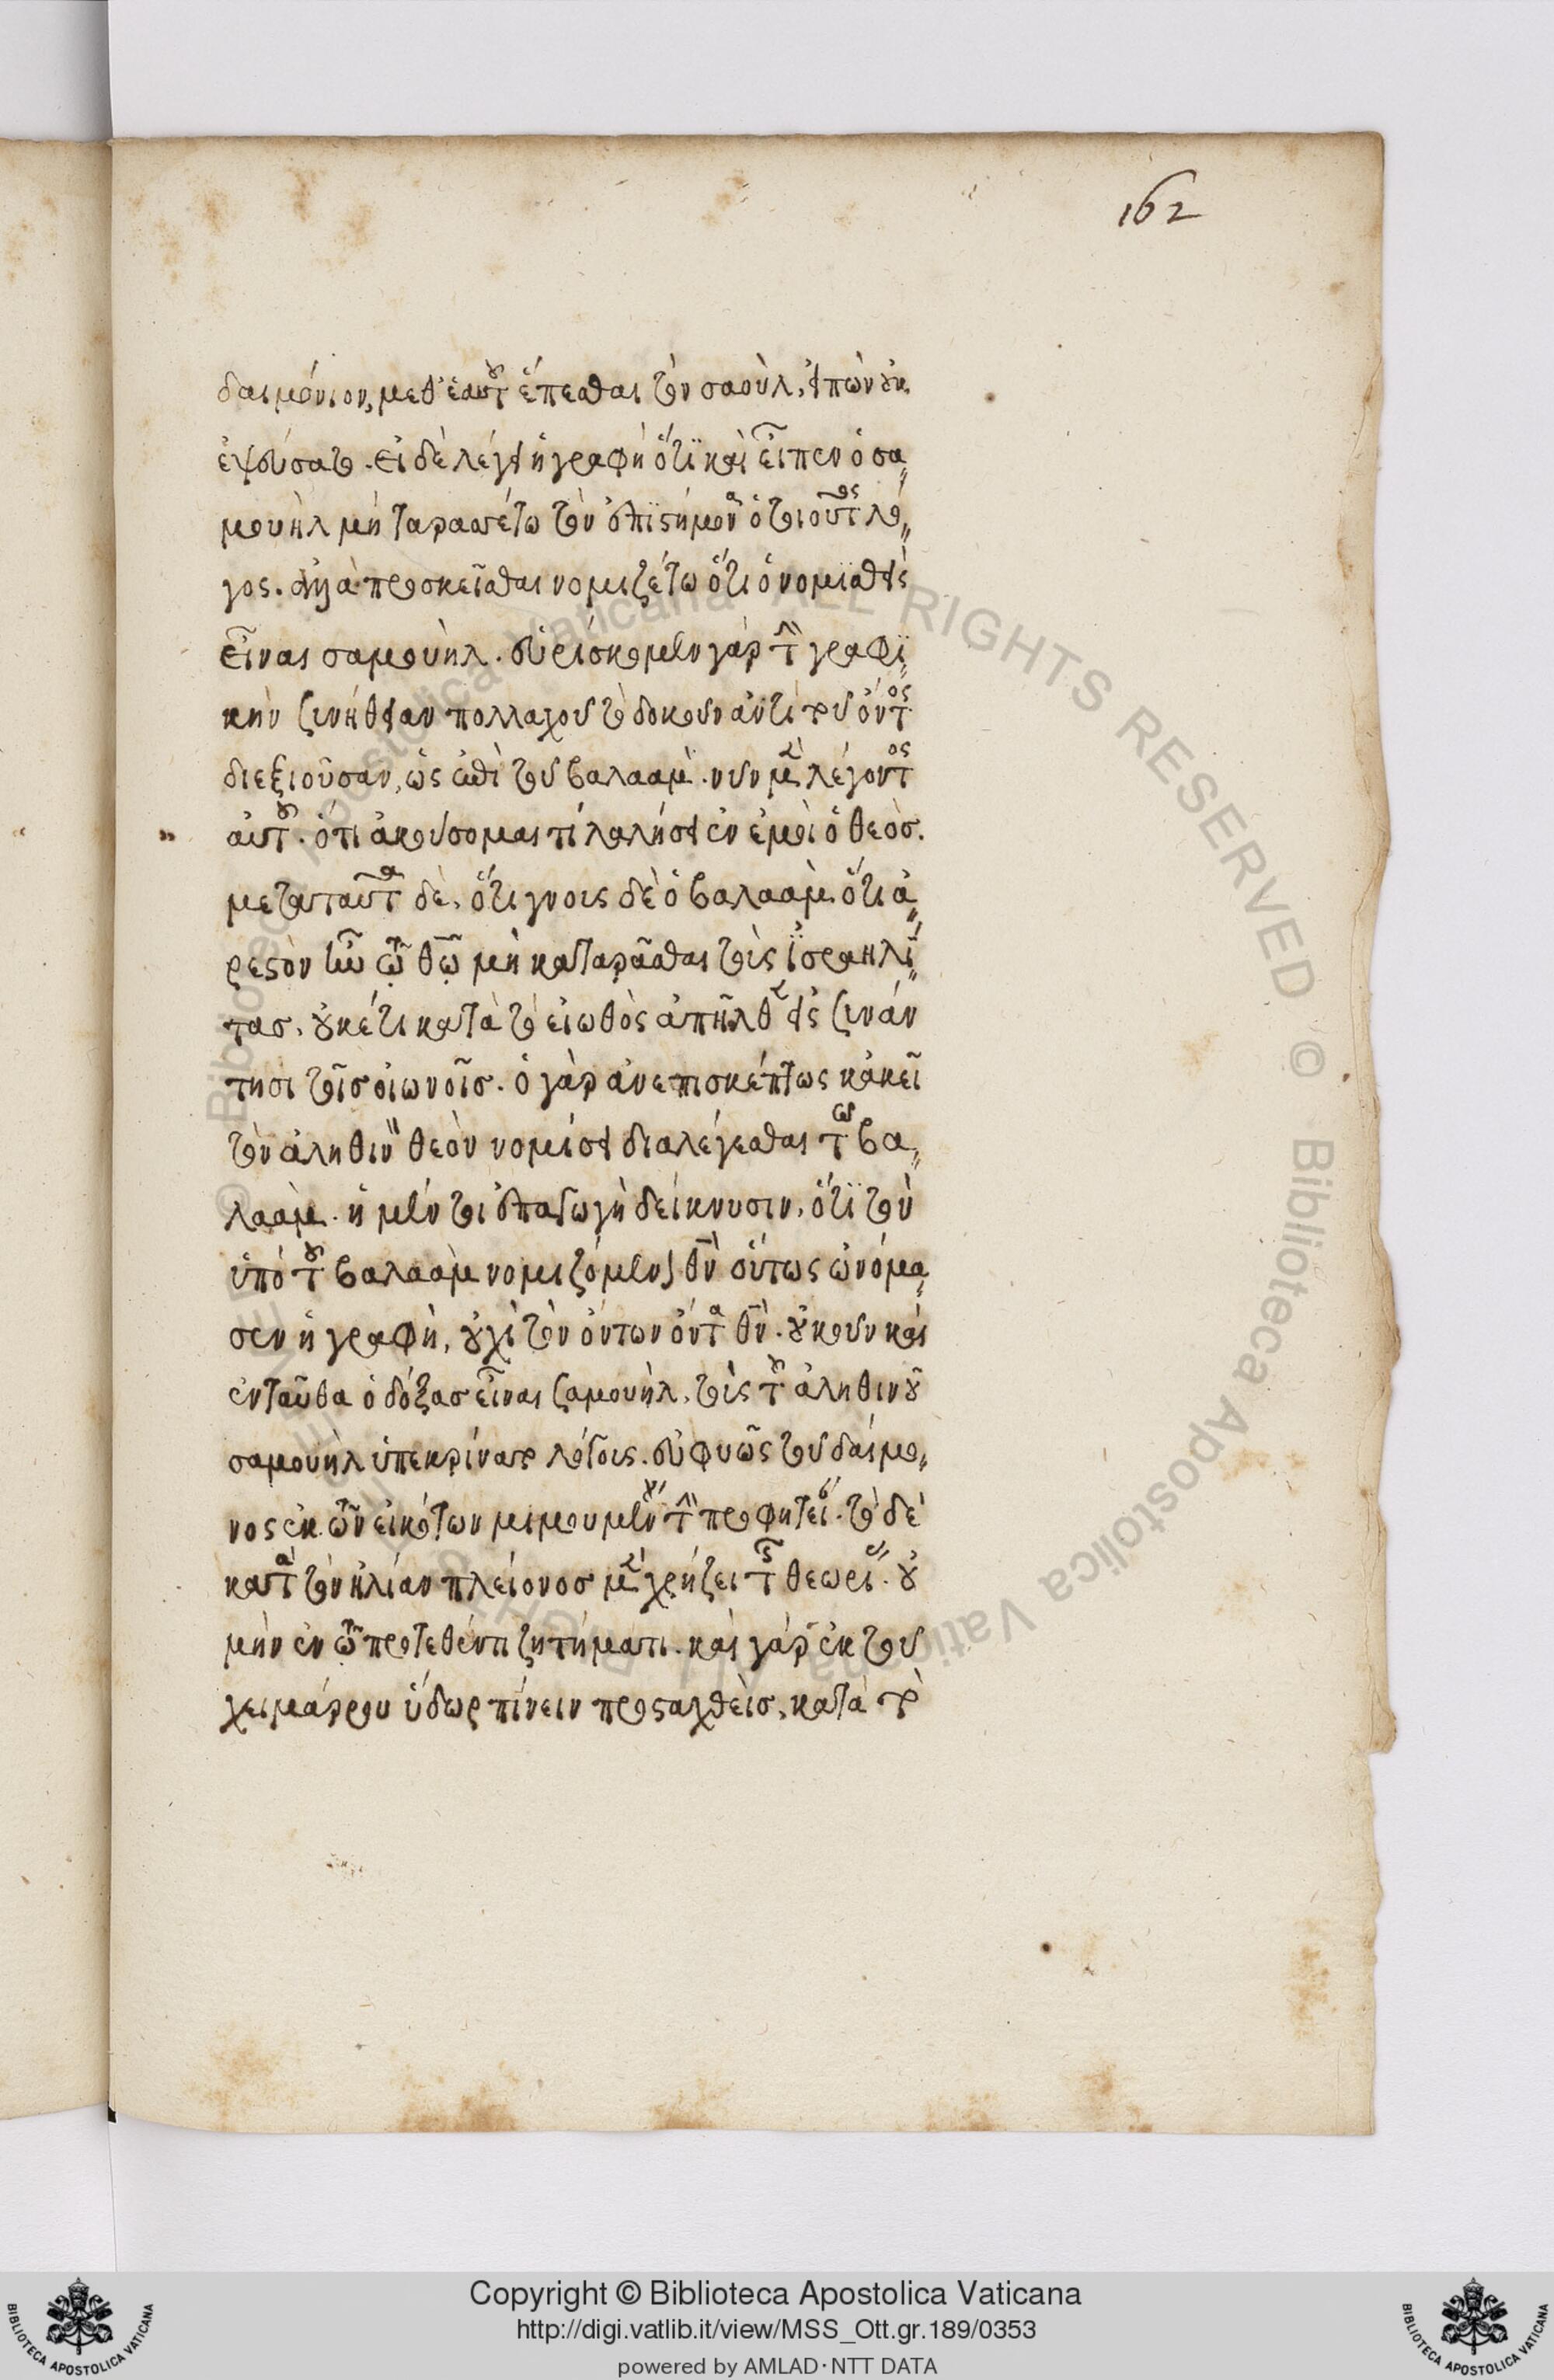 162
δαιμόνιον, μεθ' ἑαυτοῦ ἕπεσθαι τὸν σαοὺλ, εἰπὼν οὐκ
ἐψεύσατο. εἰ δὲ λέγει ἡ γραφὴ ὅτι καὶ εἶπεν ὁ σα„
μουὴλ μὴ ταρασσέτω τὸν ἐπιστήμονα ὁ τοιοῦτος λό„
γος. ἀλλὰ προσκεῖσθαι νομιζέτω ὅτι ὁ νομισθεὶς
εἶναι σαμουὴλ. εὑρίσκομεν γὰρ τὴν γραφι„
κὴν συνήθειαν πολλαχοῦ τὸ δοκοῦν ἀντὶ τοῦ ὄντος
διεξιοῦσαν, ὡς ἐπὶ τοῦ βαλαὰμ. νῦν μὲν λέγοντος
αὐτοῦ. ὅτι ἀκούσομαι τί λαλήσει ἐν ἐμοὶ ὁ θεόσ.
μετὰ ταῦτα δὲ, ὅτι γνοὺς δὲ ὁ βαλαὰμ ὅτι ἀ„
ρεστὸν ἦν τῷ θῶ μὴ καταρᾶσθαι τοὺς ἰσραηλί„
τασ, οὐκέτι κατὰ τὸ εἰωθὸς ἀπῆλθεν εἰς συνάν
τησι τοῖσ οἰωνοῖσ. ὁ γὰρ ἀνεπισκέπτως κἀκεῖ
τὸν ἀληθινὸν θεὸν νομίσει διαλέγεσθαι τῷ βα„
λαὰμ. ἡ μέν τοι ἐπαγωγὴ δείκνυσιν, ὅτι τὸν
ὑπὸ τοῦ βαλαὰμ νομιζόμενον θν οὕτως ὠνόμα„
σεν ἡ γραφὴ, οὐχὶ τὸν ὄντων ὄντα θν. οὐκοῦν καὶ
ἐνταῦθα ὁ δόξασ εἶναι σαμουὴλ, τοὺς τοῦ ἀληθινοῦ
σαμουὴλ ὑπεκρίνατο λόγοις. εὐφυῶς τοῦ δαίμο„
νος ἐκ τῶν εἰκότων μιμουμένου τὴν προφητείαν. τὸ δὲ
κατὰ τὸν ἠλίαν πλείονοσ μὲν χρήζει τῆς θεωρίας. οὐ
μὴν ἐν τῷ προτεθέντι ζητήματι. καὶ γὰρ ἐκ τοῦ
χειμάρρου ὕδωρ πίνειν προσταχθεὶσ, κατὰ τὸ
Copyright © Biblioteca Apostolica Vaticana
http://digi.vatlib.it/view/MSS_Ott.gr.189/0353
powered by AMLAD·NTT DATA